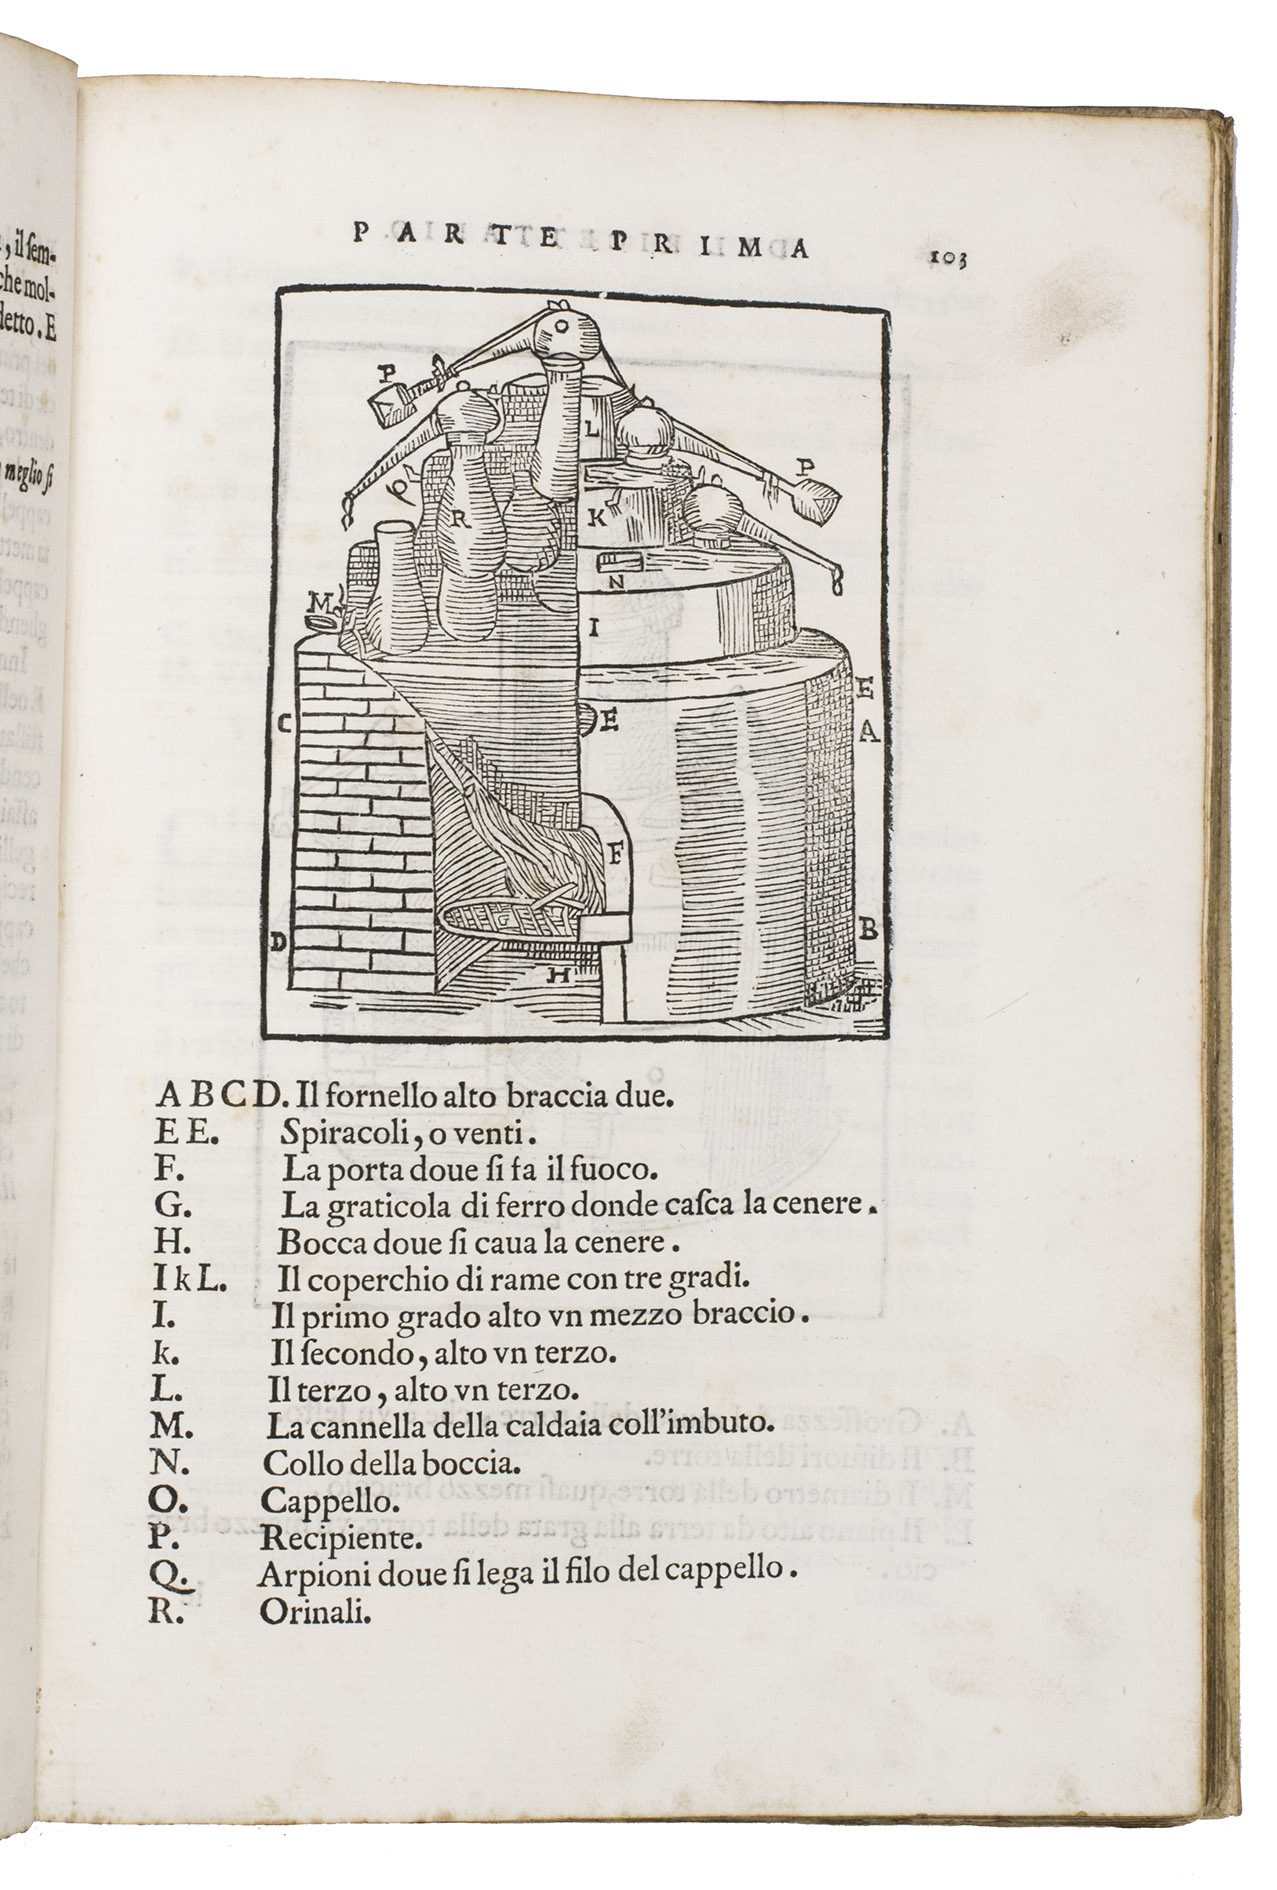 , il ſem-
che mol-
detto. E
meglio ſi
PARTE PRIMA
103
P
L
P
R
K
N
M
I
E
C
E
A
F
G
B
D
H
A B C D. Il fornello alto braccia due.
E E. Spiracoli, o venti.
F. La porta doue ſi fa il fuoco.
G. La graticola di ferro donde caſca la cenere.
H. Bocca doue ſi caua la cenere.
I k L. Il coperchio di rame con tre gradi.
I. Il primo grado alto vn mezzo braccio.
k. Il ſecondo, alto vn terzo.
L. Il terzo, alto vn terzo.
M. La cannella della caldaia coll'imbuto.
N. Collo della boccia.
O. Cappello.
P. Recipiente.
Q. Arpioni doue ſi lega il filo del cappello.
R. Orinali.